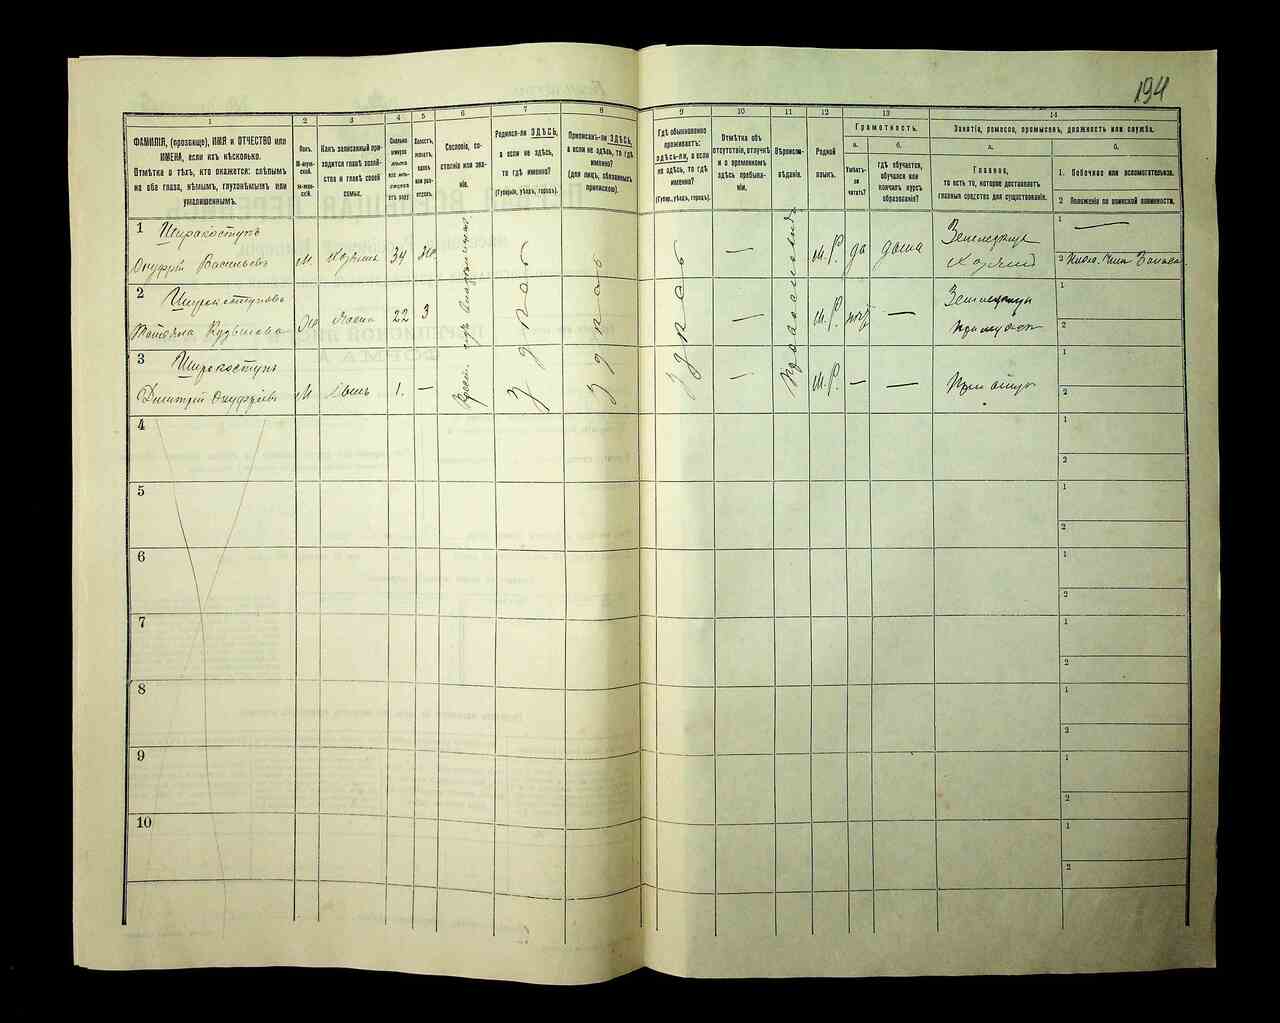 194
1
2
3
4
5
6
7
8
9
10
11
12
13
14
ФАМИЛІЯ, (прозвище), ИМЯ и ОТЧЕСТВО или
ИМЕНА, если ихъ нѣсколько.
Отмѣтка о тѣхъ, кто окажется: слѣпымъ
на оба глаза, нѣмымъ, глухонѣмымъ или
умалишеннымъ.
Полъ.
М-муж-
ской.
ж-жен-
скій.
Какъ записанный при-
ходится главѣ хозяй-
ства и главѣ своей
семьи.
Сколько
минуло
лѣтъ
или мѣ-
сяцевъ
отъ роду
Холостъ,
женатъ,
вдовъ
или раз-
веденъ
Сословіе, со-
стояніе или зва-
ніе.
Родился-ли ЗДѢСЬ,
а если не здѣсь,
то гдѣ именно?
(Губернія, уѣздъ, городъ).
Приписанъ-ли ЗДѢСЬ,
а если не здѣсь, то гдѣ
именно?
(для лицъ, обязанныхъ
припискою).
Гдѣ обыкновенно
проживаетъ:
здѣсь-ли, а если
не здѣсь, то гдѣ
именно?
(Губер., уѣздъ, городъ).
Отмѣтка объ
отсутствіи, отлучкѣ
и о временномъ
здѣсь пребыва-
ніи.
Вѣроиспо-
вѣданіе.
Родной
языкъ.
Грамотность.
а.
Умѣетъ-
ли
читать?
б.
гдѣ обучается,
обучался или
кончилъ курсъ
образованія?
Занятіе, ремесло, промыселъ, должность или служба.
а.
Главное,
то есть то, которое доставляетъ
главныя средства для существованія.
б.
1. Побочное или вспомогательное.
2 Положеніе по воинской повинности.
1
Широкоступъ
Онуфрій Васильевъ
М
Хозяинъ
34
Же
Крест.
Здѣсь
Здѣсь
Здѣсь
—
Православный
М.Р.
да
дома
Земледѣлецъ
Хозяинъ
1
—
2
2
Широкоступова
Татьяна Кузьмина
Же
Жена
22
З
—
М.Р.
—
Земледѣлецъ
При мужѣ
1
2
3
Широкоступъ
Дмитрій Онуфріевъ
М
Сынъ
1.
—
—
М.Р.
—
—
При отцѣ
1
2
4
1
2
5
1
2
6
1
2
7
1
2
8
1
2
9
1
2
10
1
2